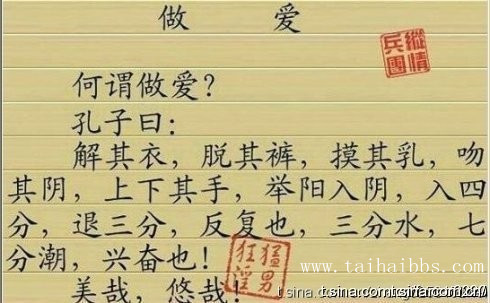 做 爱
纵情
兵团
何谓做爱？
孔子曰：
解其衣，脱其裤，摸其乳，吻
其阴，上下其手，举阳入阴，入四
分，退三分，反复也，三分水，七
分潮，兴奋也！
猛男
狂淫
www.taihaibbs.com
美哉，悠哉！